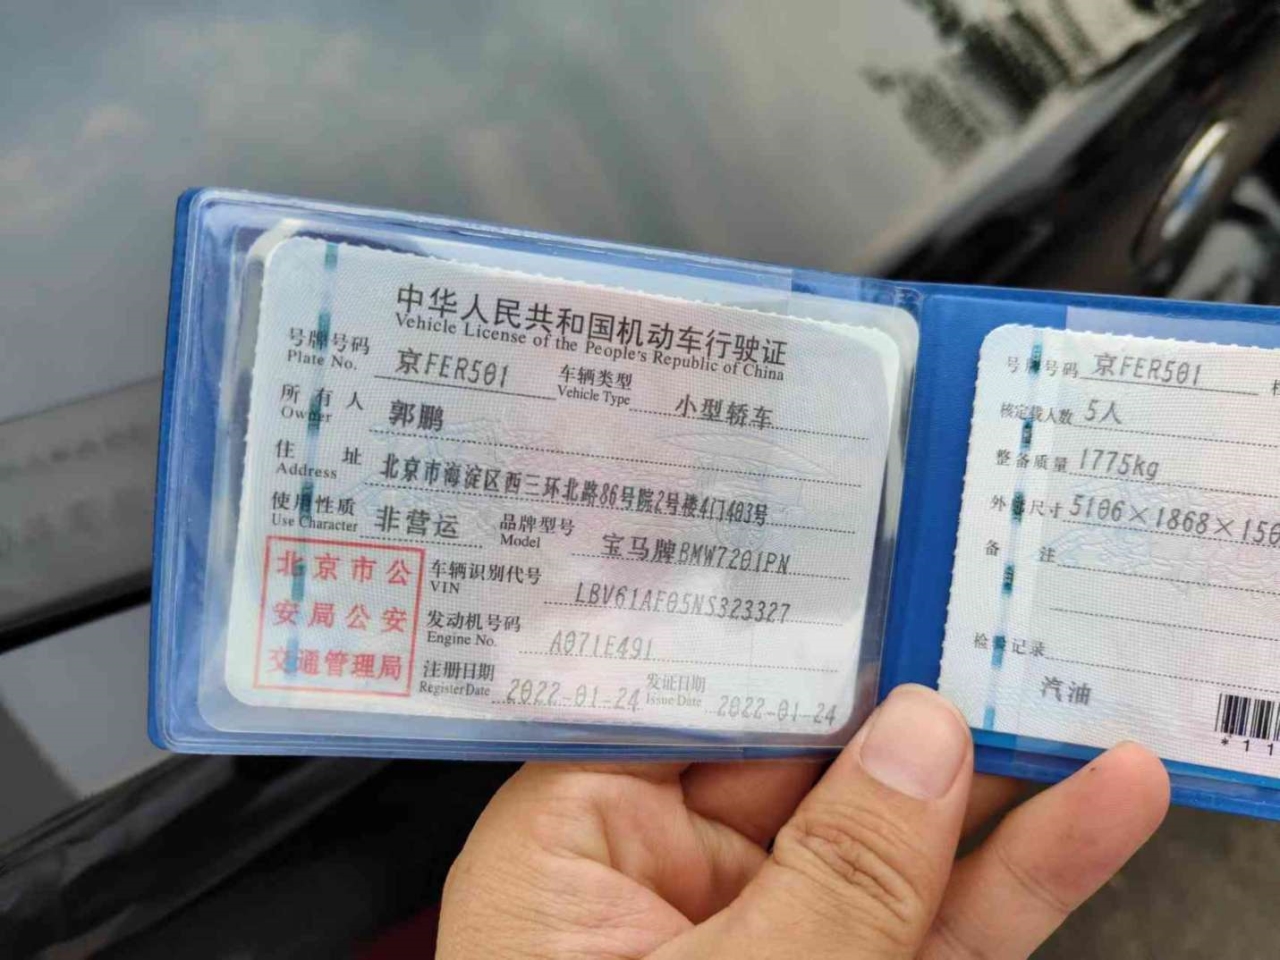 中华人民共和国机动车行驶证
Vehicle License of the People's Republic of China
号牌号码 京FER501 车辆类型 小型轿车
Plate No. Vehicle Type
所有人 郭鹏
Owner
住址 北京市海淀区西三环北路86号院2号楼4门403号
Address
使用性质 非营运 品牌型号 宝马牌BMW7201PN
Use Character Model
北京市公
安局公安
交通管理局
车辆识别代号 LBV61AF05NS323327
VIN
发动机号码 A071E491
Engine No.
注册日期 2022-01-24 发证日期 2022-01-24
Register Date Issue Date
号牌号码 京FER501
核定载人数 5人
整备质量 1775kg
外廓尺寸 5106×1868×150
备注
检验记录
汽油
*11